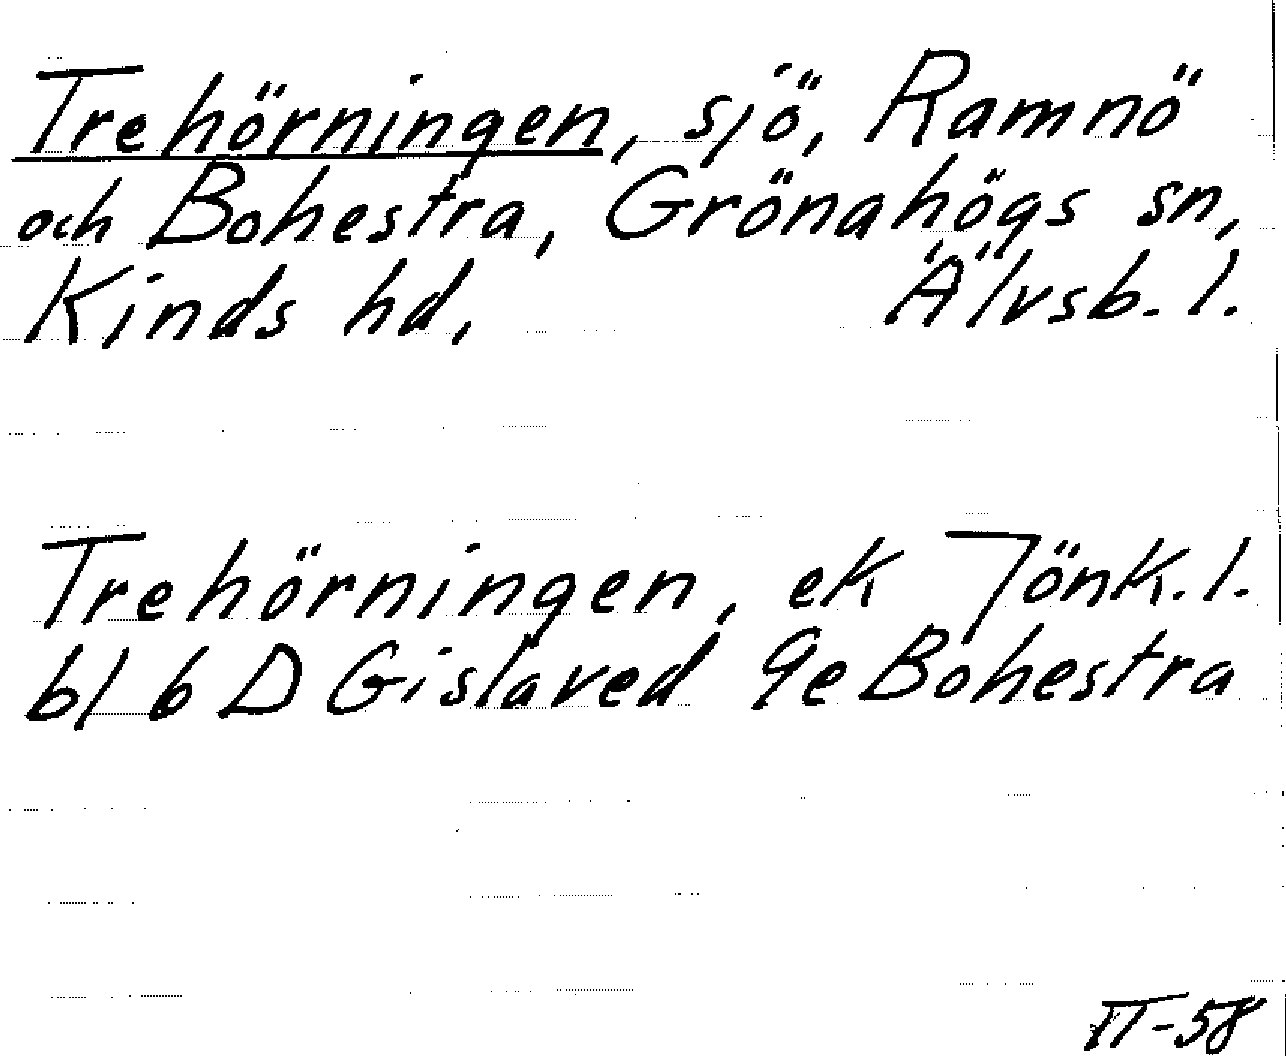 Trehörningen, sjö, Ramnö
och Bohestra, Grönahögs sn,
Kinds hd, Älvsb. l.
Trehörningen, ek Jönk. l.
bl 6 D Gislaved 9e Bohestra
II-58